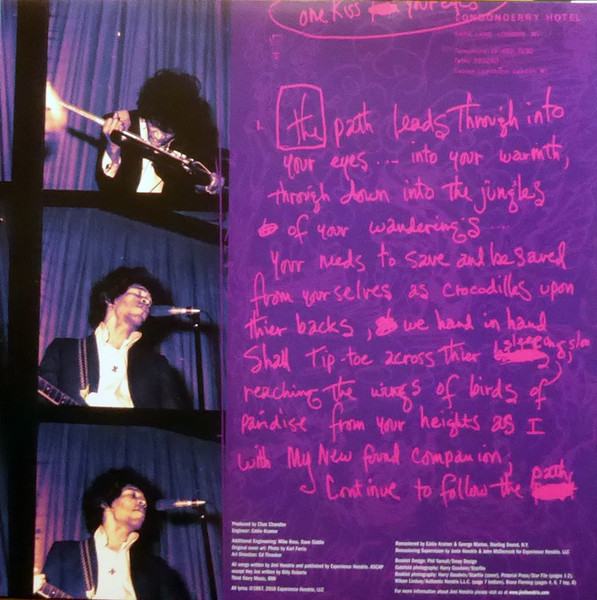 one Kiss your eyes
LONDONDERRY HOTEL
PARK LANE LONDON W1
1. the path leads Through into
your eyes .... into your warmth,
through down into The jungles
of your wanderings ....
Your needs to save and be saved
from yourselves as crocodilles upon
thier backs, we hand in hand
Shall tip-toe across thier
reaching The wings of birds of
paridise from your heights as I
with My New found companion,
Continue to follow the path
Produced by Chas Chandler
Engineer: Eddie Kramer
Additional Engineering: Mike Ross, Dave Siddle
Original cover art: Photo by Karl Ferris
Art Direction: Ed Thrasher
All songs written by Jimi Hendrix and published by Experience Hendrix, ASCAP
except Hey Joe written by Billy Roberts
Third Story Music, BMI
All lyrics ©1967, Experience Hendrix, LLC
Remastered by Eddie Kramer & George Marino, Sterling Sound, N.Y.
Remastering Supervision by Janie Hendrix & John McDermott for Experience Hendrix, LLC
Booklet Design: Phil Yarnall/Smay Design
Gatefold photography: Harry Goodwin/Starfile
Booklet photography: Harry Goodwin/Starfile (cover), Pictorial Press/Star File (pages 1 2),
For more information about Jimi Hendrix please visit us at www.jimihendrix.com